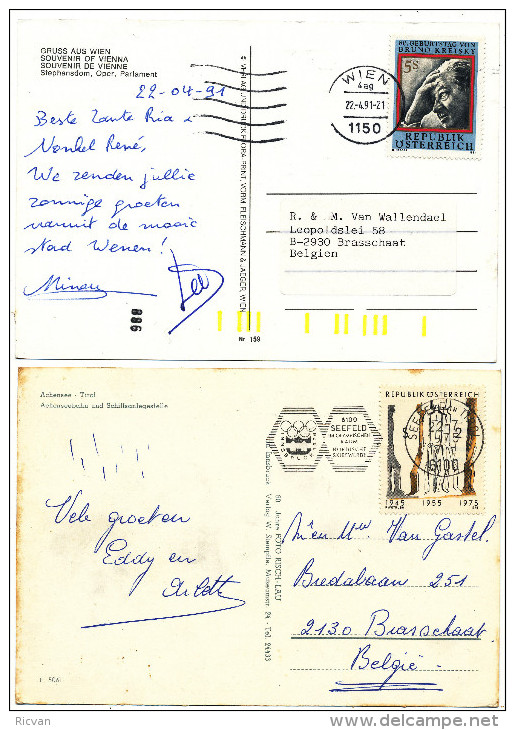 GRUSS AUS WIEN
SOUVENIR OF VIENNA
SOUVENIR DE VIENNE
Stephansdom, Oper, Parlament
22-04-91
Beste Tante Ria &
Nonkel René,
We zenden jullie
zonnige groeten
vanuit de mooie
stad Wenen!
886
Nr 159
WIEN
4ag
22.-4.91-21
1150
80. GEBURTSTAG VON
BRUNO KREISKY
5S
REPUBLIK
ÖSTERREICH
R. & M. Van Wallendael
Leopoldslei 58
B-2930 Brasschaat
Belgien
Achensee - Tirol
Achenseebahn und Schiffsanlegestelle
Vele groeten
Eddy en
6100
SEEFELD
REPUBLIK ÖSTERREICH
6100
1945 1955 1975
Van Gastel
Bredabaan 251
2130 Brasschaat
België
Ricvan
www.delcampe.net